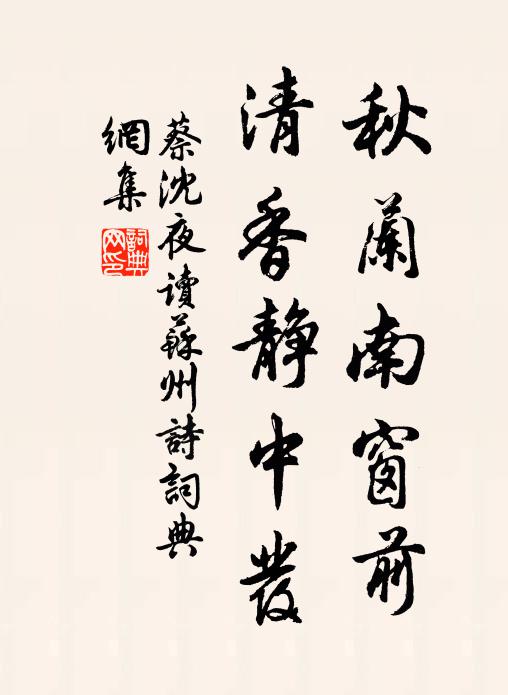 秋蘭南窗前
清香静中發
蔡沈夜讀蘇州詩詞典
網集
詞典網印